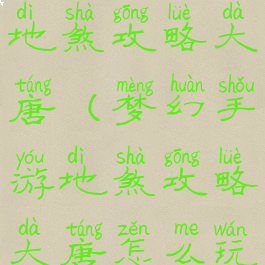 dì shà gōng lüè dà
地煞攻略大
táng mèng huàn shǒu
唐(梦幻手
yóu dì shà gōng lüè
游地煞攻略
dà táng zěn me wán
大唐怎么玩